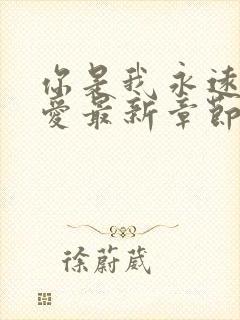 你是我永遠
愛最新章節
徐蔚葳